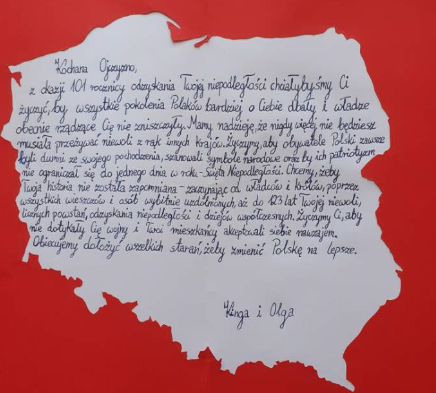 Kochana Ojczyzno,
z okazji 101 rocznicy odzyskania Twojej niepodległości chciałybyśmy Ci
życzyć, by wszystkie pokolenia Polaków bardziej o Ciebie dbały i władze
obecnie rządzące Cię nie zniszczyły. Mamy nadzieję, że nigdy więcej nie będziesz
musiała przeżywać niewoli z rąk innych krajów. Życzymy, aby obywatele Polski zawsze
byli dumni ze swojego pochodzenia, szanowali symbole narodowe oraz by ich patriotyzm
nie ograniczał się do jednego dnia w roku - Święta Niepodległości. Chcemy, żeby
Twoja historia nie została zapomniana - zaczynając od władców i królów, poprzez
wszystkich wieszczów i osób wybitnie uzdolnionych, aż do 123 lat Twojej niewoli,
licznych powstań, odzyskania niepodległości i dziejów współczesnych. Życzymy Ci, aby
nie dotykały Cię wojny i Twoi mieszkańcy akceptowali siebie nawzajem.
Obiecujemy dołożyć wszelkich starań, żeby zmienić Polskę na lepsze.
Kinga i Olga